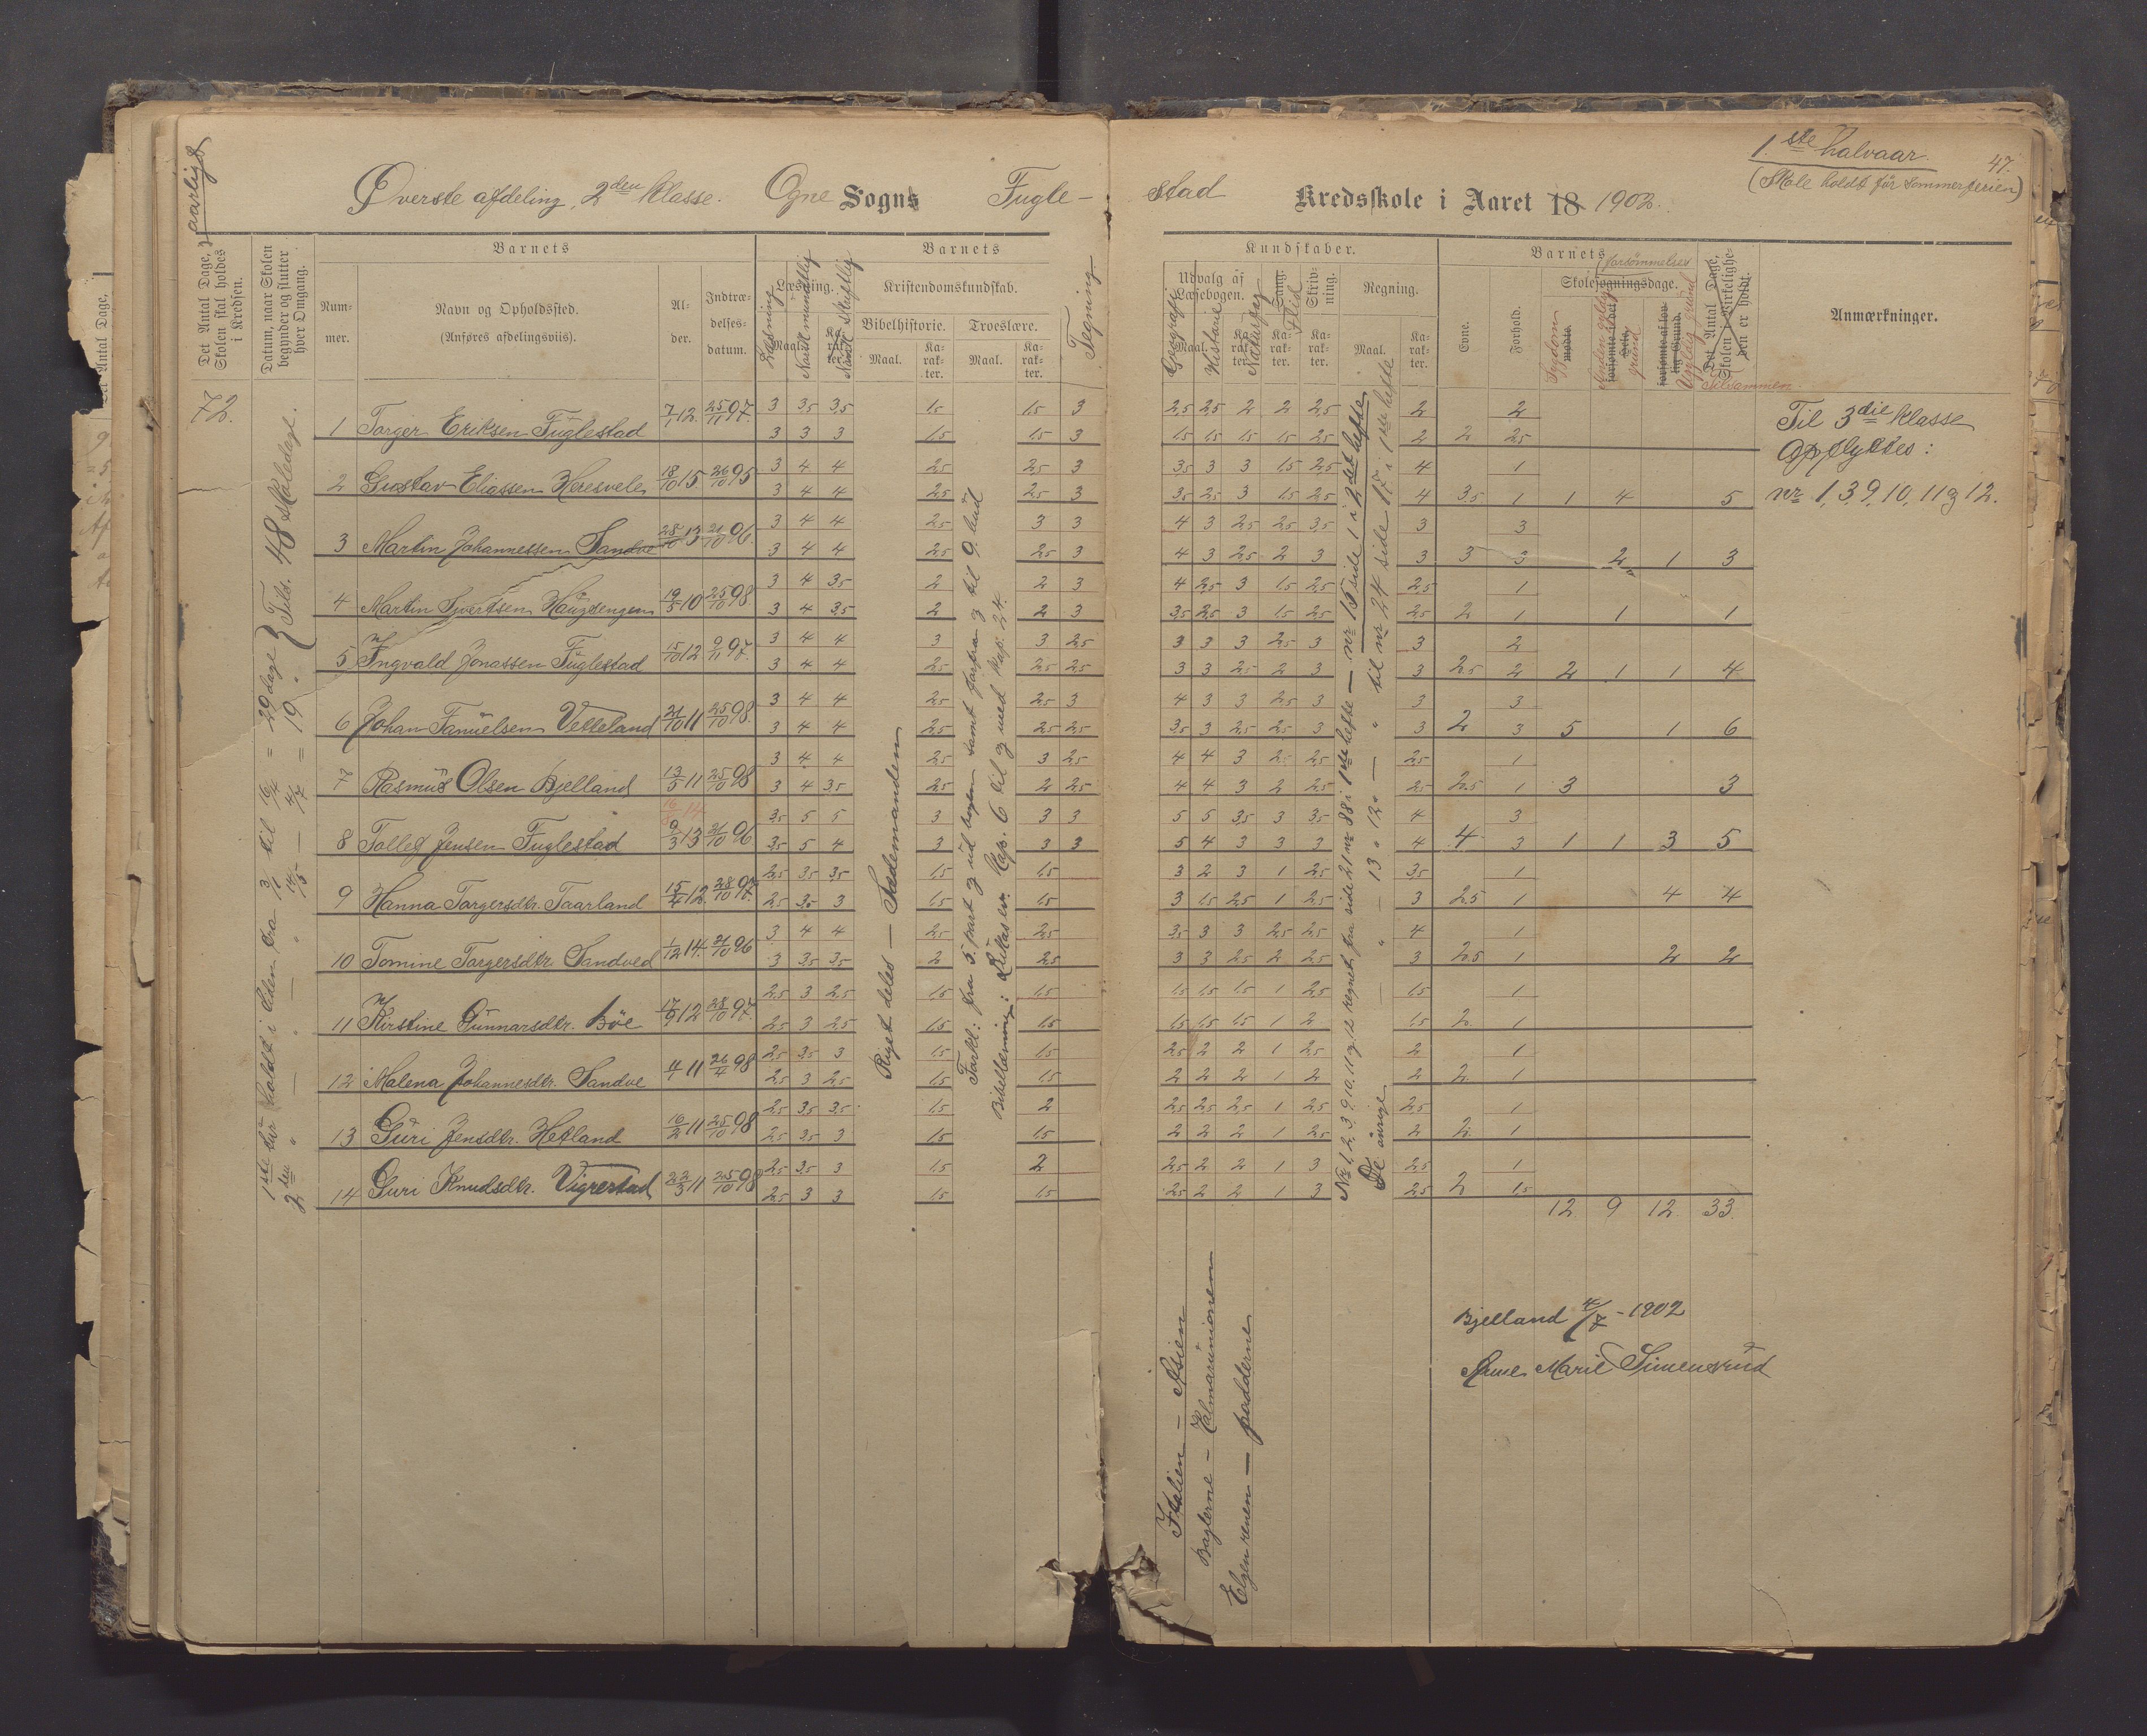 1ste halvaar.
47.
(Skole holdt før sommerferien)
Øverste afdeling, 2den klasse. Ogne Sogns Fugle-
stad Kredsskole i Aaret 18 1902.
aarligt
Det Antal Dage, Skolen skal holdes i Kredsen.
Datum, naar Skolen begynder og slutter hver Omgang.
Barnets
Nummer.
Navn og Opholdssted.
(Anføres afdelingsviis).
Alder.
Indtrædelsesdatum.
Barnets
Læsning.
Læsning
Maal.
Norsk mundtlig
Karakter.
Norsk skriftlig
Kristendomskundskab.
Bibelhistorie.
Maal.
Karakter.
Troeslære.
Maal.
Karakter.
Tegning
Kundskaber.
Udvalg af Læsebogen.
Maal.
Geografi
Historie
Karakter.
Naturfag
Sang.
Flid
Karakter.
Skrivning.
Karakter.
Regning.
Maal.
Karakter.
Barnets
Evne.
Forhold.
forsømmelser
Skolesøgningsdage.
Sygdom
mødte.
Anden gyldig grund
Ugyldig grund
Det Antal Dage, Skolen i Virkelighden er holdt.
Tilsammen.
Anmærkninger.
72.
1ste tur holdt i tiden fra 13/1 til 16/4 = 29 dage
2den " — " — " 14/5 — 4/7 = 19 "
Tils. 48 skoledage.
1 Torger Eriksen Fuglestad 7/1 12. 25/11 97. 3 3,5 3,5 1,5 1,5 3 2,5 2,5 2 2 2,5 2 2
3 3 3 1,5 1,5 3 1,5 1,5 1,5 1,5 2,5 2 2 2,5
2 Gustav Eliassen Heresvele 18/10 15. 26/10 95 3 4 4 2,5 2,5 3 3,5 3 3 1,5 2,5 4 1
3 4 4 2,5 2,5 3 3,5 2,5 3 1,5 2,5 4 3,5 1 1 4 5
3 Martin Johannessen Sandve 28/10 13 21/10 96 3 4 4 2,5 3 3 4 3 2,5 2,5 3,5 3 3
3 4 4 2,5 2,5 3 4 3 2,5 2 3 3 3 3 2 1 3
4 Martin Sjvertsen Haugsengen 19/5 10 25/10 98 3 4 3,5 2 2 3 4 2,5 3 1,5 2,5 2,5 1
3 4 3,5 2 2 3 3,5 2,5 3 1,5 2,5 2,5 2 1 1 1
5 Ingvald Jonassen Fuglestad 15/10 12 9/11 97. 3 4 4 3 3 2,5 3 3 3 2,5 3 3 2
3 4 4 2,5 2,5 2,5 3 3 2,5 2 3 3 2,5 2 2 1 1 4
6 Johan Fanuelsen Vetteland 21/10 11 25/10 98. 3 4 4 2,5 2,5 3 4 3 3 2,5 3 3 3
3 4 4 2,5 2,5 2,5 3,5 3 2,5 2,5 3 3 2 3 5 1 6
7 Rasmus Olsen Bjelland 13/5 11 25/10 98 3 4 4 2,5 3 2,5 4 4 3 2 2,5 2,5 1
3 4 3,5 2,5 2 2,5 4 4 3 2 2,5 2,5 2,5 1 3 3
16/8 14.
8 Tolleg Jensen Fuglestad 9/3 13 21/10 96 3,5 5 5 3 3 3 5 5 3,5 3 3,5 4 3
3,5 5 4 3 3 3 5 4 3 3 3 4 4 3 1 1 3 5
9 Hanna Torgersdtr. Taarland 15/4 12. 28/10 97. 2,5 3,5 3,5 1,5 1,5 3 2 3 1 2,5 3,5 1
2,5 3,5 3 1,5 1,5 3 1,5 2,5 1 2,5 3 2,5 1 4 4
10 Tomine Torgersdtr. Sandved 1/12 14. 21/10 96 3 4 4 2,5 2,5 3,5 3 3 2,5 2,5 4 1
3 3,5 3,5 2 2,5 3 3 2,5 2 2,5 3 2,5 1 2 2
11 Kirstine Gunnarsdtr. Bøe 17/9 12 28/10 97. 2,5 3 2,5 1,5 1,5 1,5 1,5 1,5 1 2,5 1,5 1
2,5 3 2,5 1,5 1,5 1,5 1,5 1,5 1 2 1,5 2. 1
12 Malena Johannesdtr. Sandve 4/1 11 26/4 98 2,5 3,5 3 1,5 1,5 2,5 2 2 1 2,5 2 1
2,5 3 2,5 1,5 1,5 2 2 2 1 2 2 2. 1
13 Guri Jensdtr. Hetland 16/2 11 25/10 98 2,5 3,5 3,5 1,5 2 2,5 2,5 2,5 1 2,5 2,5 1
2,5 3,5 3 1,5 1,5 2 2 2 1 2,5 2 2. 1
14 Guri Knudsdtr. Vigrestad 22/3 11 25/10 98 2,5 3,5 3 1,5 2 2,5 2 2 1 3 2,5 1
2,5 3 3 1,5 1,5 2,5 2 2 1 3 2,5 2 1,5
12. 9 12. 33.
Riget deles — Sædemanden
Forkl: fra 5. part og ud bogen samt forfra og til 9. bud
Bibellæsning: Lukas ev. Kap. 6 til og med kap. 24.
Italien — Asien
Baglerne — Kalmarunionen
Elgen renen — padderne
No 1, 2, 3, 9, 10, 11 og 12 regnet fra side 21 nr 88 i 1ste hefte — nr 15 side 1 i 2det hefte
De øvrige — " — 13 " 12 " — " til nr 24 side 17 i 1ste hefte
Til 3die klasse
opflyttes:
nr 1, 3, 9, 10, 11 og 12.
Bjelland 4/7 - 1902
Anne Marie Simensrud